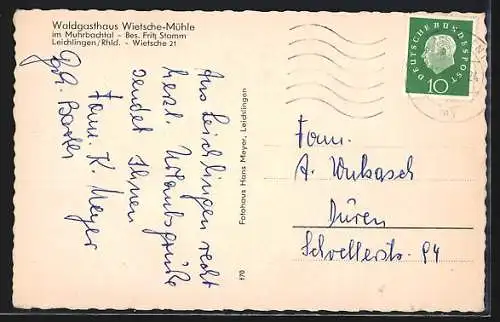 Waldgasthaus Wietsche-Mühle
im Muhrbachtal - Bes. Fritz Stamm
Leichlingen/Rhld. - Wietsche 21
Aus Leichlingen recht
herzl. Urlaubsgrüße
sendet Ihnen
Fam. K. Meyer
Fotohaus Hans Meyer, Leichlingen
170
DEUTSCHE BUNDESPOST
10
Fam.
A. Wubasch
Düren
Schoellerstr. 94